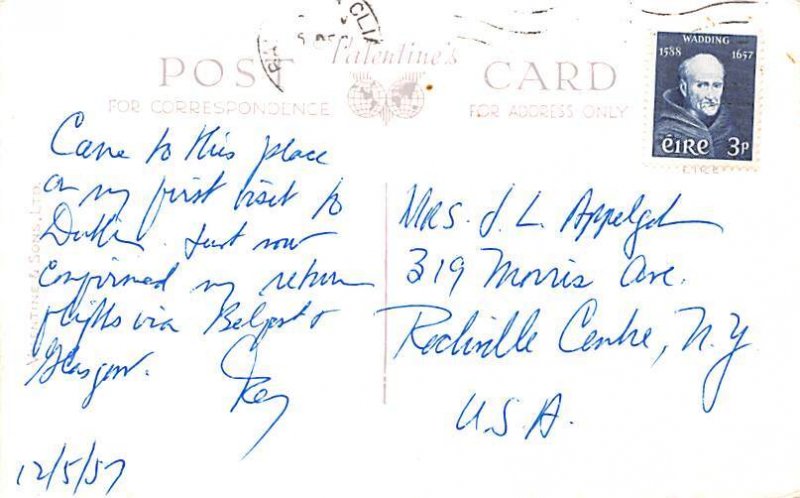 POST CARD
Valentine's
FOR CORRESPONDENCE
FOR ADDRESS ONLY
WADDING
1588 1657
éire 3p
VALENTINE & SONS, LTD.
Came to this place
on my first visit to
Dublin. Just now
confirmed my return
flights via Belfast &
Glasgow.
12/5/57
Mrs. J. L.
319 Morris Ave.
Rockville Centre, N.Y.
U.S.A.